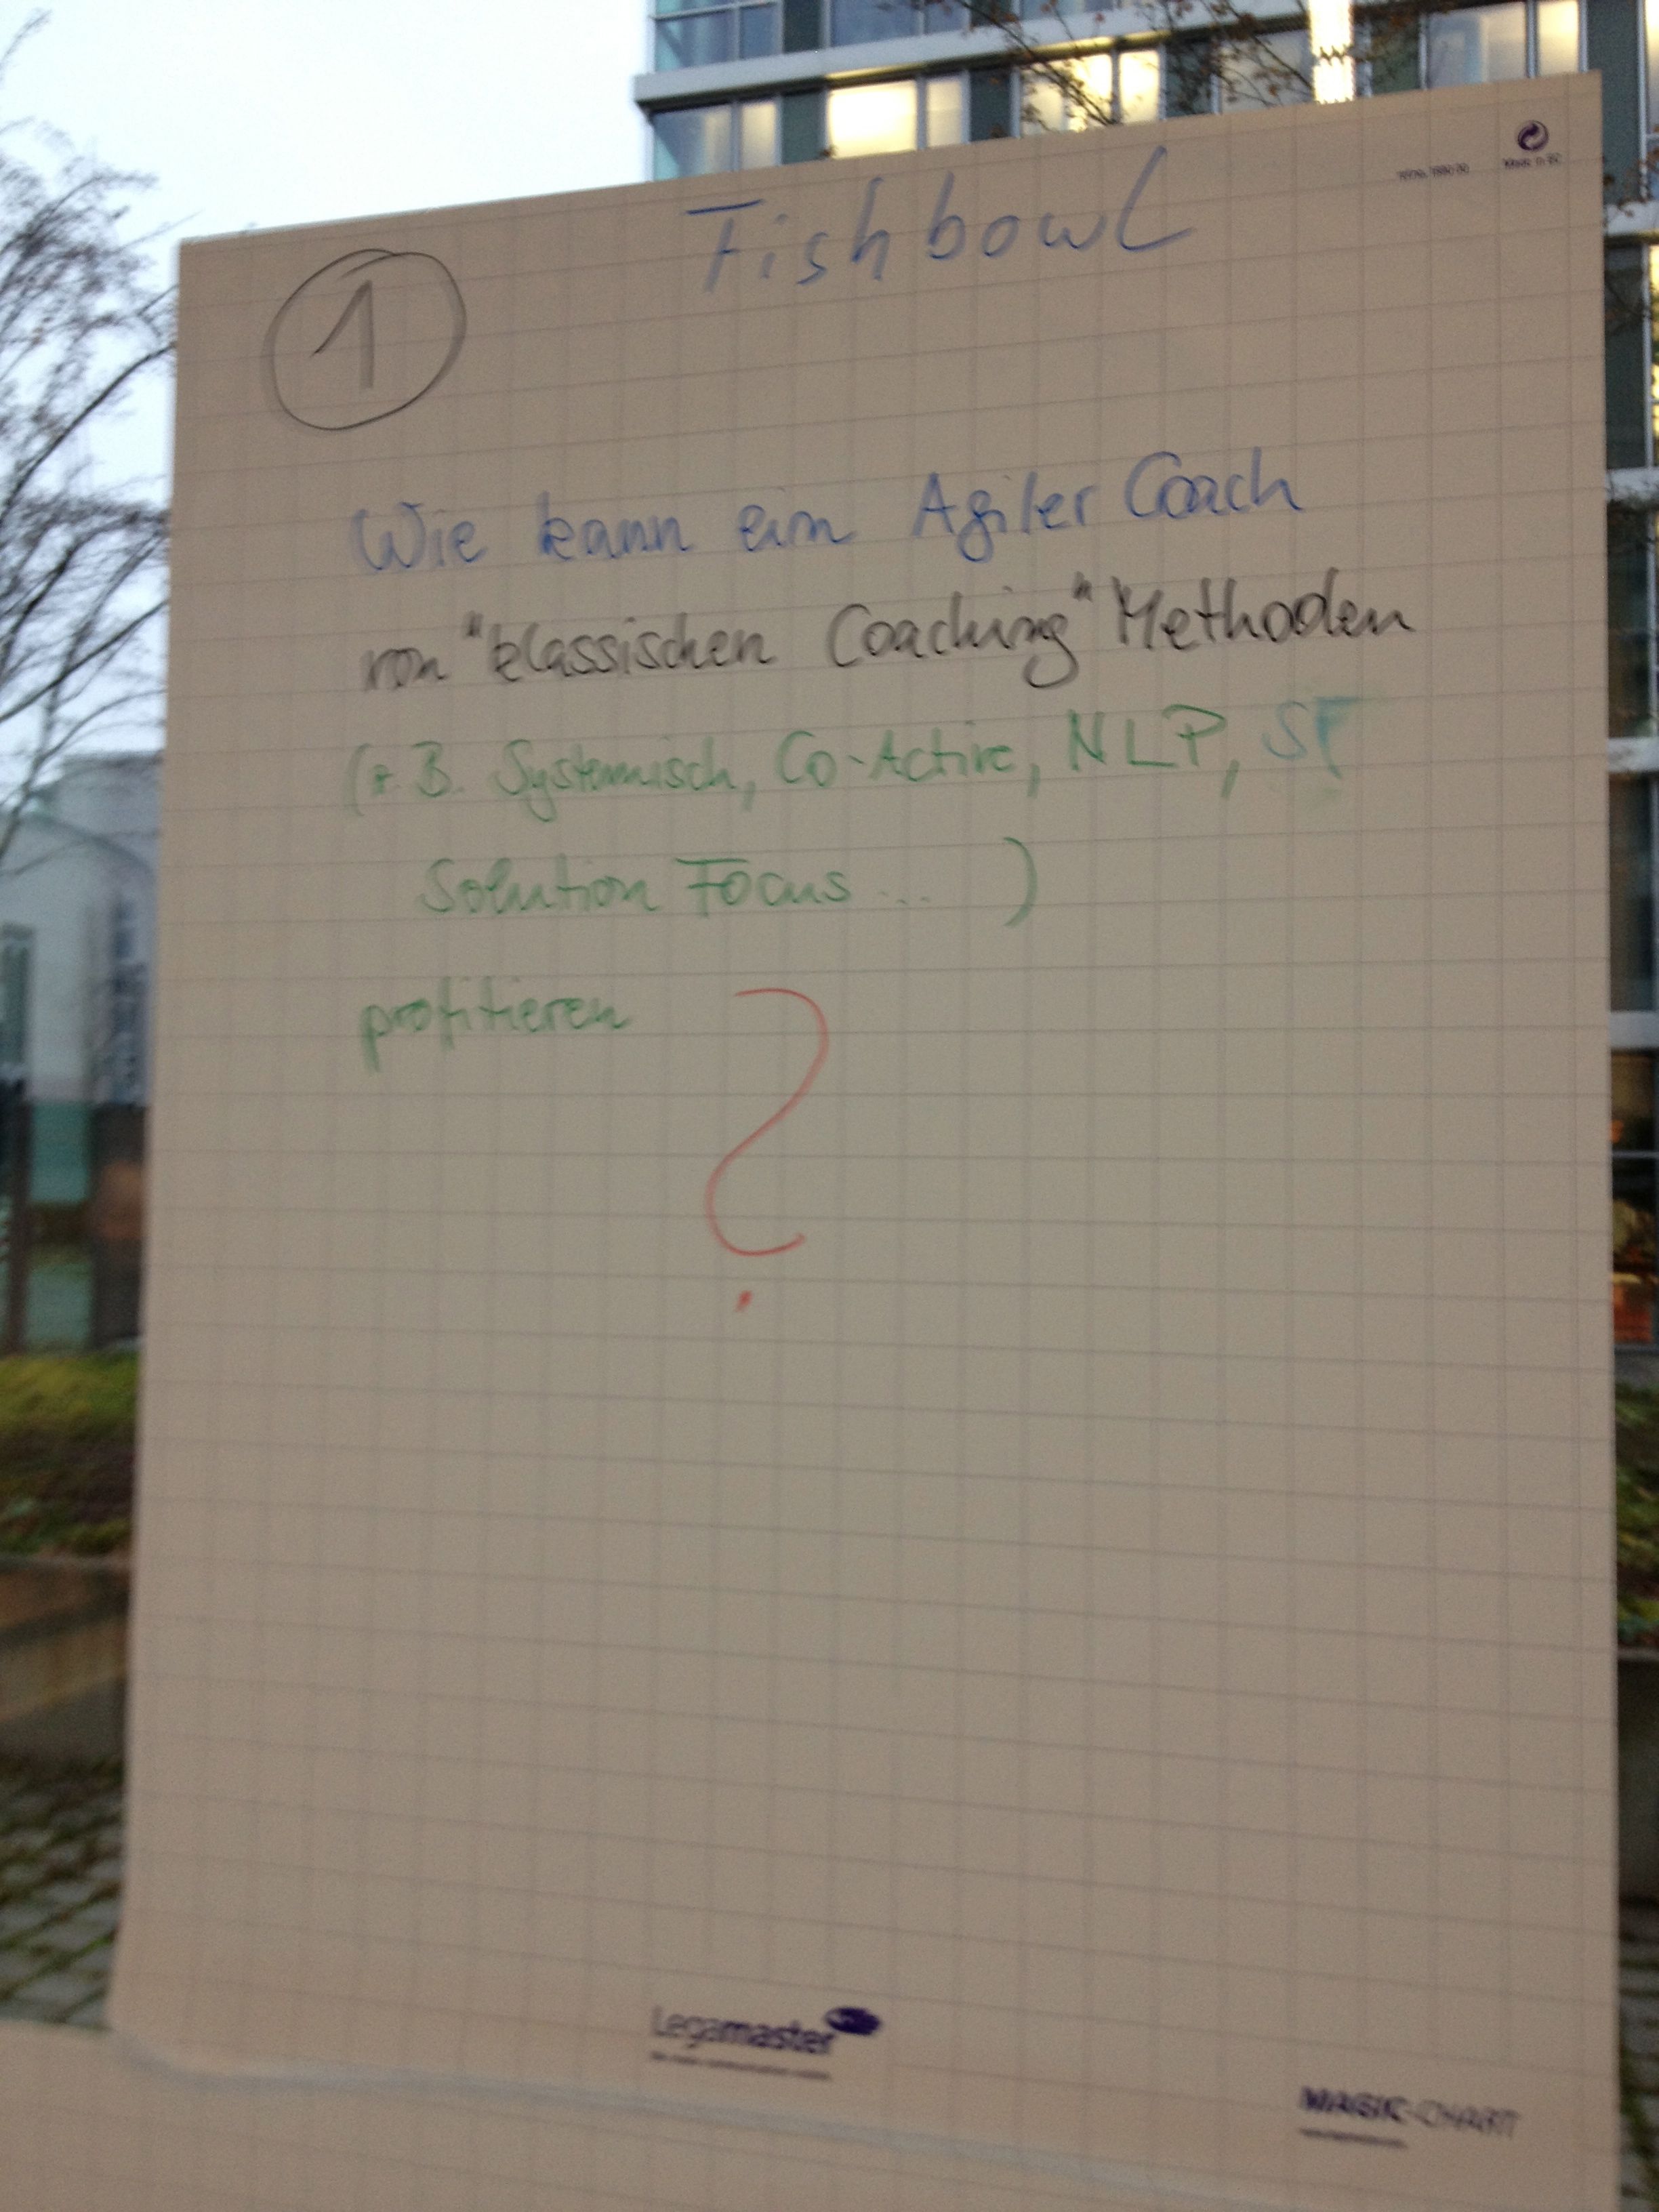 Fishbowl
1
Wie kann ein Agiler Coach
von "klassischen Coaching" Methoden
(z.B. Systemisch, Co-Active, NLP, SF
Solution Focus ... )
profitieren
?
Legamaster
MAGIC-CHART